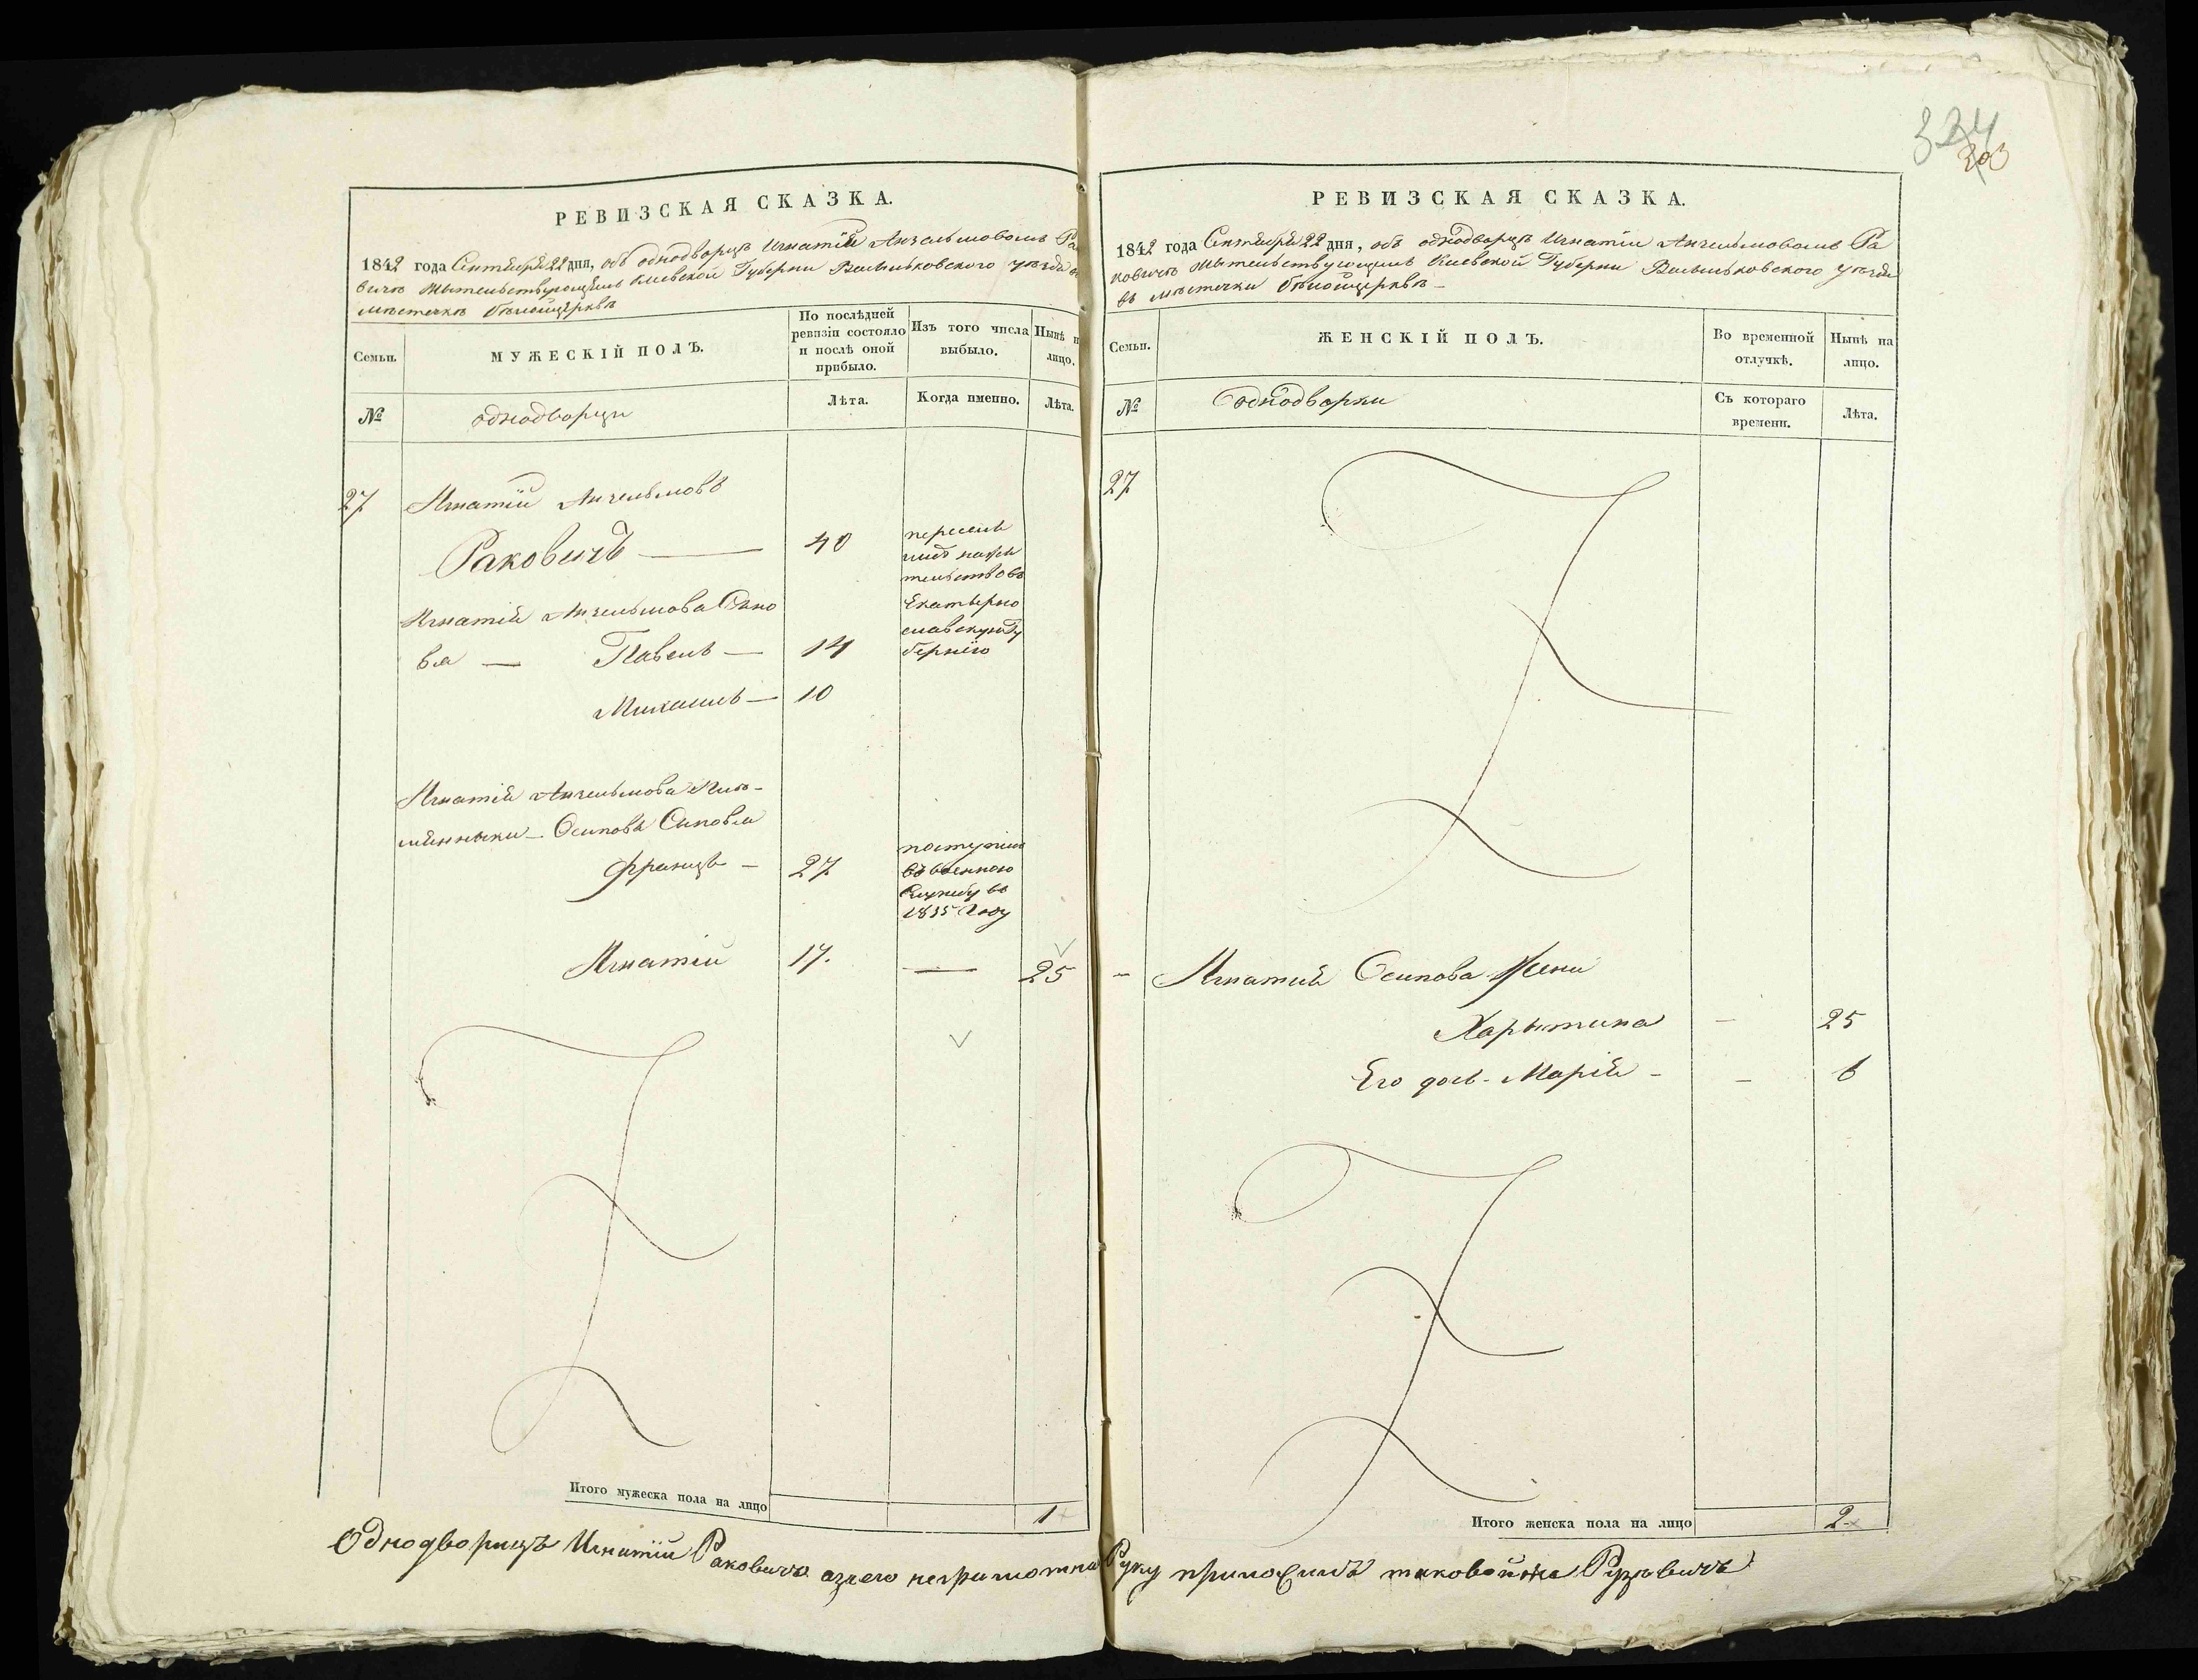 324
303
РЕВИЗСКАЯ СКАЗКА.
1842 года Сентября 22 дня, объ однодворцѣ Игнатіи Анзельмовомъ Ра
вичѣ Жительствующемъ Киевской Губерни Васильковского уѣзда въ
мѣстечкѣ бѣлойцерквѣ
Семьи.
МУЖЕСКІЙ ПОЛЪ.
По послѣдней ревизіи состояло и послѣ оной прибыло.
Изъ того числа выбыло.
Нынѣ н лицо.
№
однодворци
Лѣта.
Когда именно.
Лѣта.
27 Игнатій Анзельмовъ
Раковичъ — 40
пересе
лился на жи
тельство въ
Екатерино
славскую Гу
бернію
Игнатія Анзельмова Сыно
вя — Павелъ — 14
Михаилъ — 10
Игнатія Анзельмова Пле-
мянники — Осиповы Сыновя
Францъ — 27
поступилъ
въ военною
службу въ
1835 Году
Игнатій 17. — 25
Итого мужеска пола на лицо 1
РЕВИЗСКАЯ СКАЗКА.
1842 года Сентября 22 дня, объ однодворцѣ Игнатіи Анзельмовомъ Ра
ковичѣ Жительствующемъ Киевской Губерни Васильковского уѣзда
въ мѣстечки бѣлойцерквѣ —
Семьи.
ЖЕНСКІЙ ПОЛЪ.
Во временной отлучкѣ.
Нынѣ на лицо.
№
Однодворки
Съ котораго времени.
Лѣта.
27
— Игнатия Осипова Жена
Харытина — 25
Его дочь - Марія - — 6
Итого женска пола на лицо 2
Однодворицъ Игнатій Раковичъ азаего неграмотна Руку приложилъ таковойже